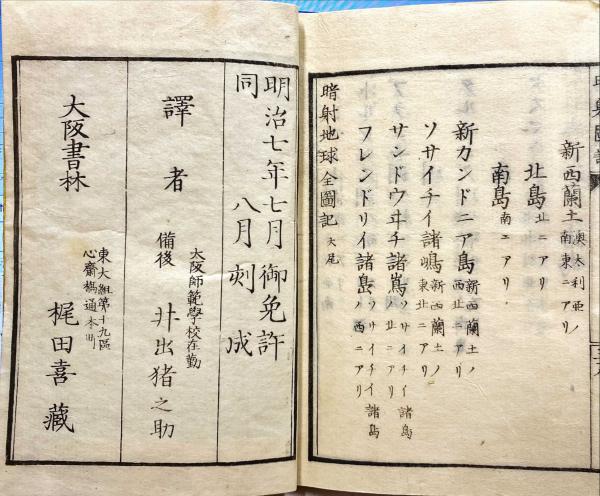 新西蘭土 澳太利亜ノ南東ニアリ
北島 北ニアリ
南島 南ニアリ
新カンドニア島 新西蘭土ノ西北ニアリ
ソサイチイ諸嶋 新西蘭土ノ東北ニアリ
サンドウヰチ諸嶌 ソサイチイ諸島ノ北ニアリ
フレンドリイ諸島 ソサイチイ諸島ノ西ニアリ
暗射地球全圖記 大尾
明治七年七月御免許
同 八月刻成
大阪師範學校在勤
譯者 備後 井出猪之助
東大組第十九區
心齋橋通本町
大阪書林 梶田喜藏